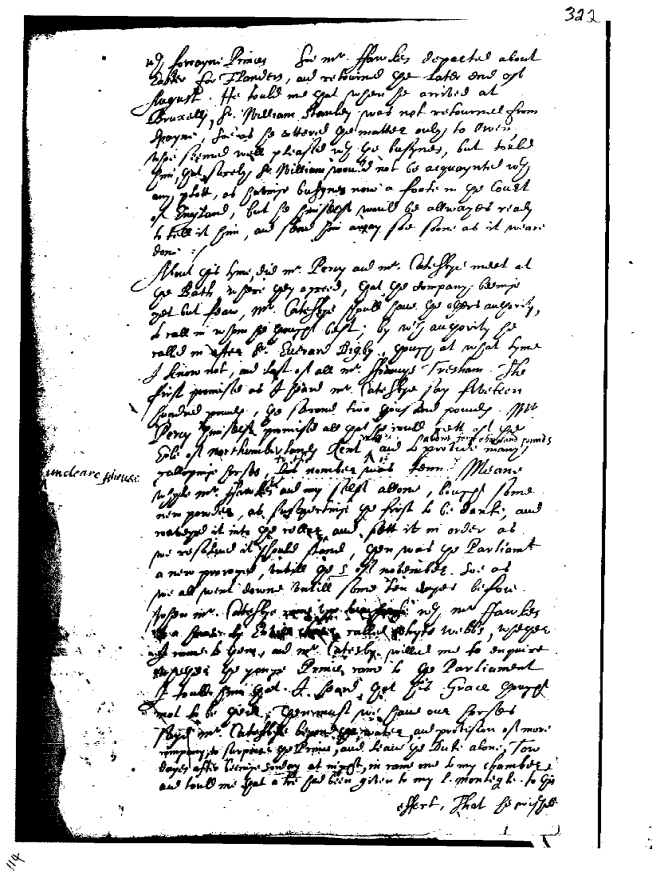 322
wth forrayne Princes Soe mr. ffawkes departed about
Easter for Flanders, and retourned the later end of
August. He tould me that when he arrived at
Bruxells, Sr. William Stanley was not retourned from
Spayne, soe as he uttered the matter only to Owen,
who seemed well pleased wth the busynes, but tould
him that surely Sr William would not be acquaynted wth
any plott, as having busynes now a foote in the Court
of England, but he himself would be allwayes ready
to tell it him, and send him away soe soone as it weare
done.
About this tyme did mr. Percy and mr. Catesbye meet at
the Bath where they agreed, that the company being
yet but few, mr. Catesbye should have the others authority,
to call in whom he thought best: by wch authority he
called in after Sr. Everard Digby, though at what tyme
I know not, and last of all mr. Francys Tresham. The
first promised as I heard mr. Catesbye say fifteen
hundred pounds, the second two thousand pounds. Mr
Percy himself promised all that he could gett of the
Erle of northumberlands Rent and to provide many
galloping horses, his number was tenn. Meane
uncleare phrase
whyle mr. ffawkes and my self alone, bought some
new powder, as suspecting the first to be danke, and
conveyed it into the celler, and sett it in order as
we resolved it should stand, then was the Parliamt
a new proroged, untill the 5 of november. Soe as
we all went downe untill some ten dayes before.
When mr. Catesbye wth mr ffawkes
called whyte webbs, whither
I came to them, and mr. Catesby willed me to enquire
whether the yonge Prince came to the Parliament
I tould him that I heard that his Grace thought
not to be there. Then must we have our horses
sayd mr. Catesbye beyond the water, and provision of more
company, to surprise the Prince, and leave the Duke alone. Tow
dayes after being Sunday at night, in came one to my chamber
and tould me that a had been given to my l. Monteagle to this
effect, That he
114